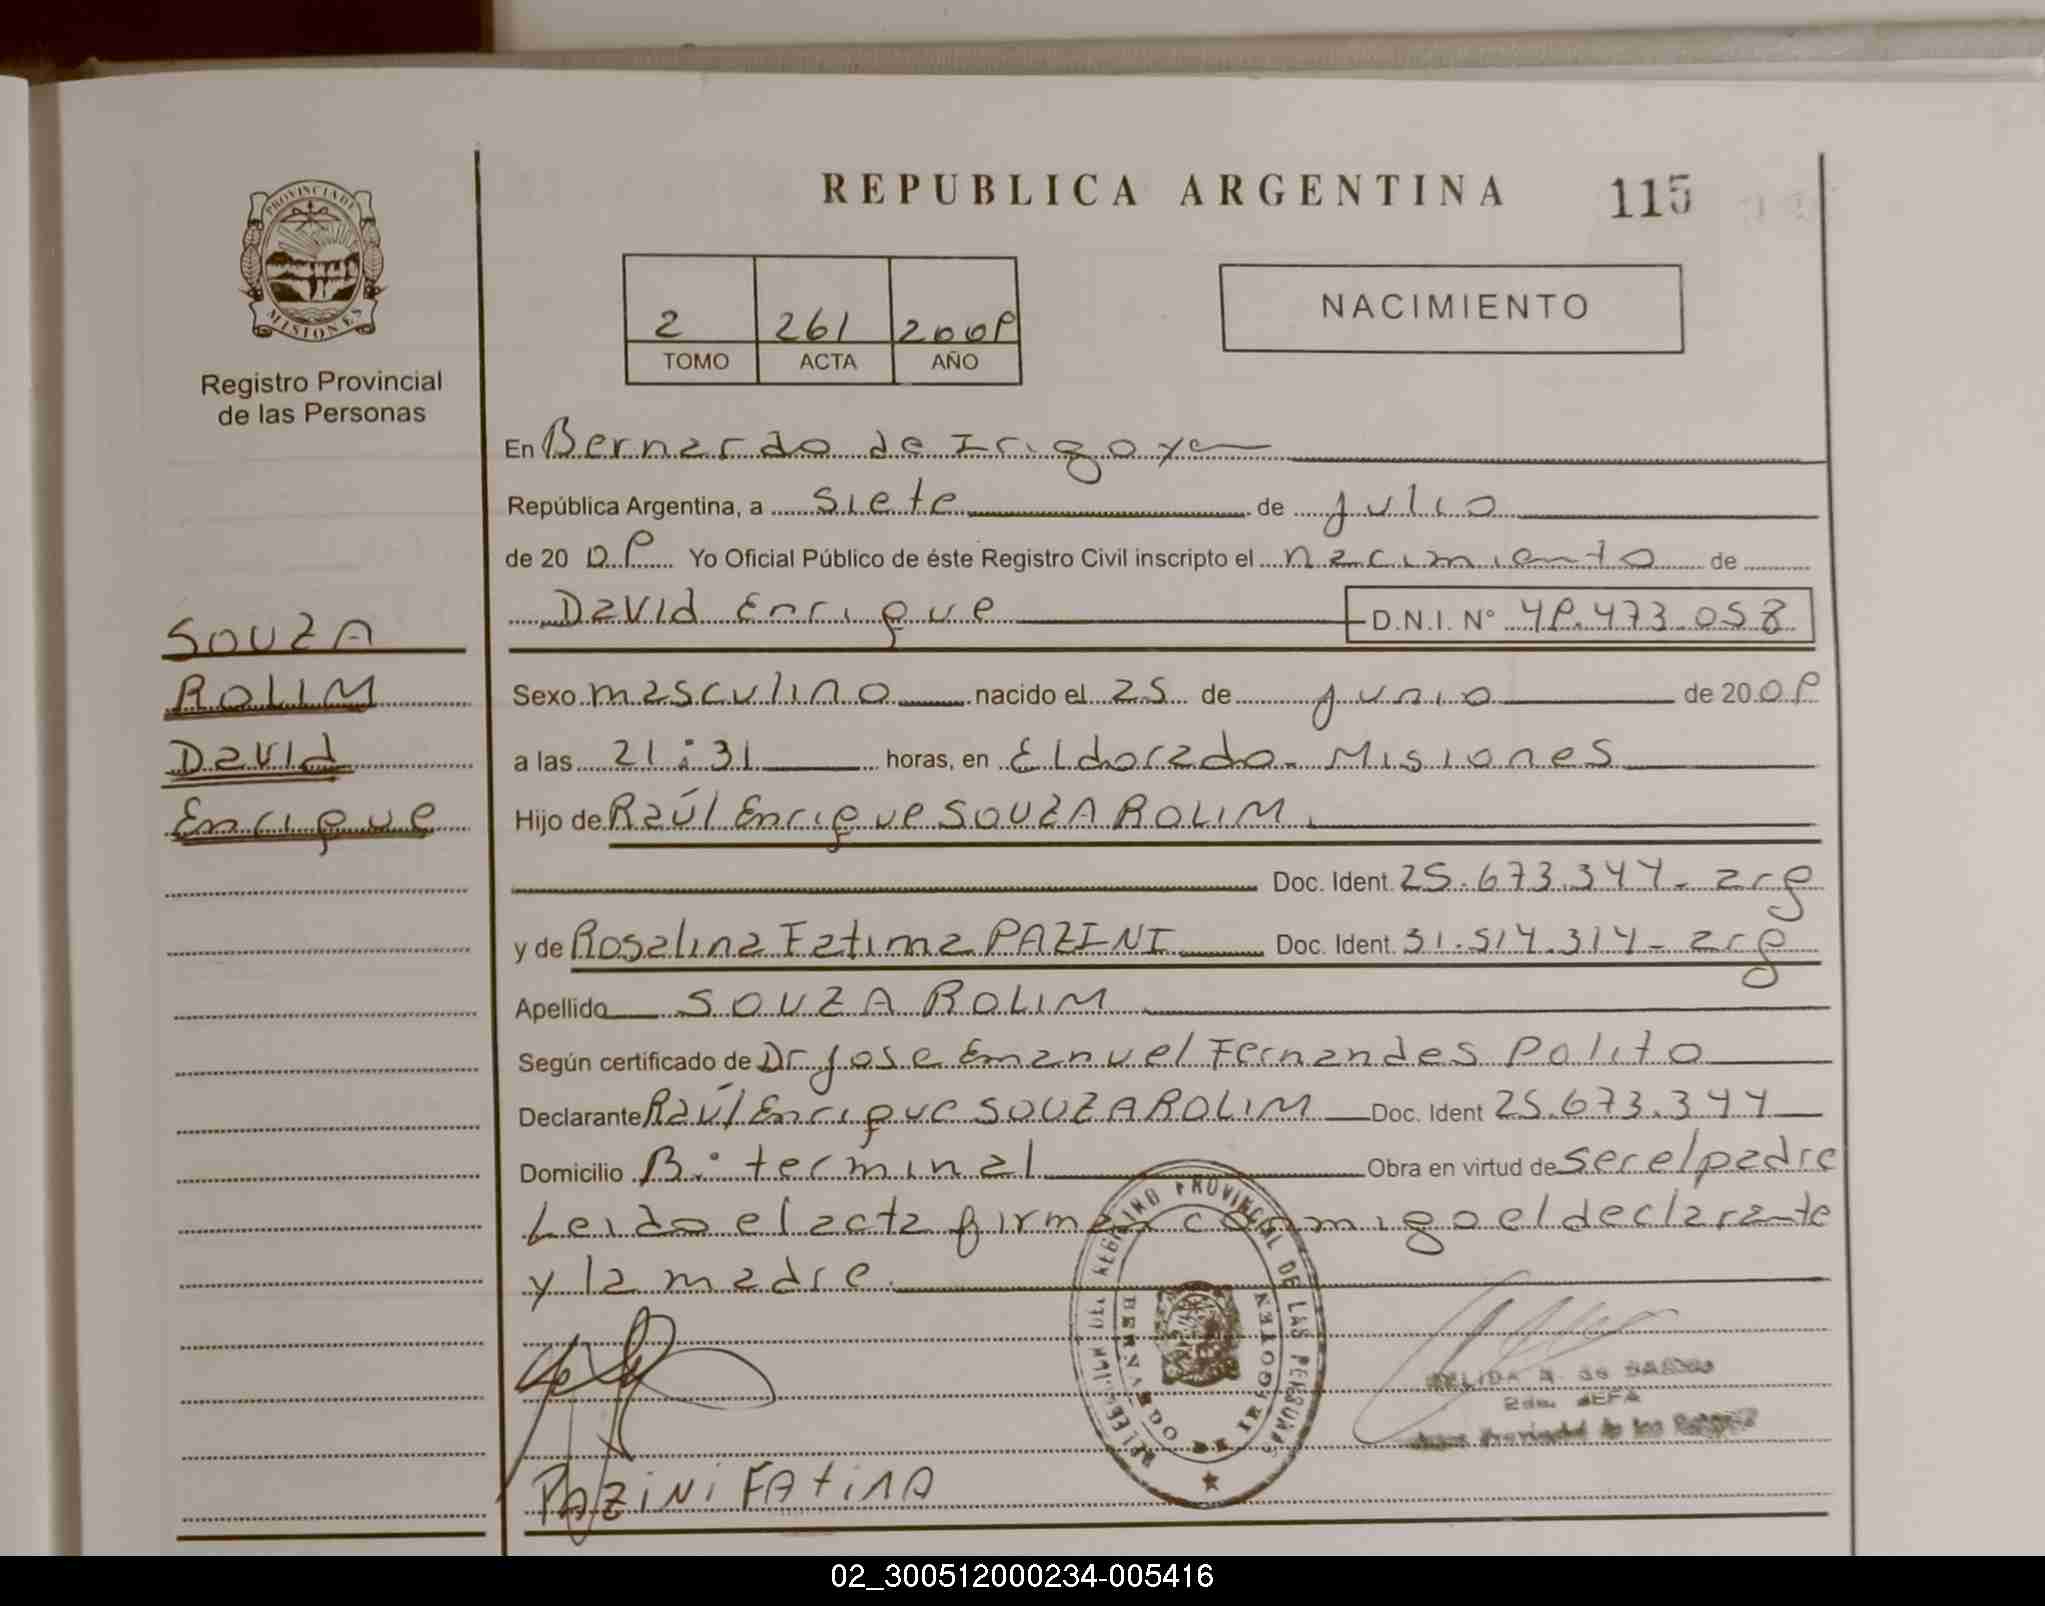 PROVINCIA DE
MISIONES
Registro Provincial
de las Personas
SOUZA
ROLIM
David
Enrique
REPUBLICA ARGENTINA 115
2 261 2009
TOMO ACTA AÑO
NACIMIENTO
En Bernardo de Irigoyen
República Argentina, a siete de julio
de 20 09 Yo Oficial Público de éste Registro Civil inscripto el nacimiento de
David Enrique D.N.I. N° 49.473.058
Sexo masculino nacido el 25 de junio de 2009
a las 21:31 horas, en Eldorado - Misiones
Hijo de Raúl Enrique SOUZA ROLIM
Doc. Ident. 25.673.344 - arg
y de Rosalina Fatima PAZINI Doc. Ident. 31.514.314 - arg
Apellido SOUZA ROLIM
Según certificado de Dr Jose Emanuel Fernandes Polito
Declarante Raúl Enrique SOUZA ROLIM Doc. Ident 25.673.344
Domicilio B° terminal Obra en virtud de ser el padre
Leido el acta firman conmigo el declarante
y la madre.
REGISTRO PROVINCIAL DE LAS PERSONAS
BERNARDO DE IRIGOYEN
PAZINI FATIMA
02_300512000234-005416